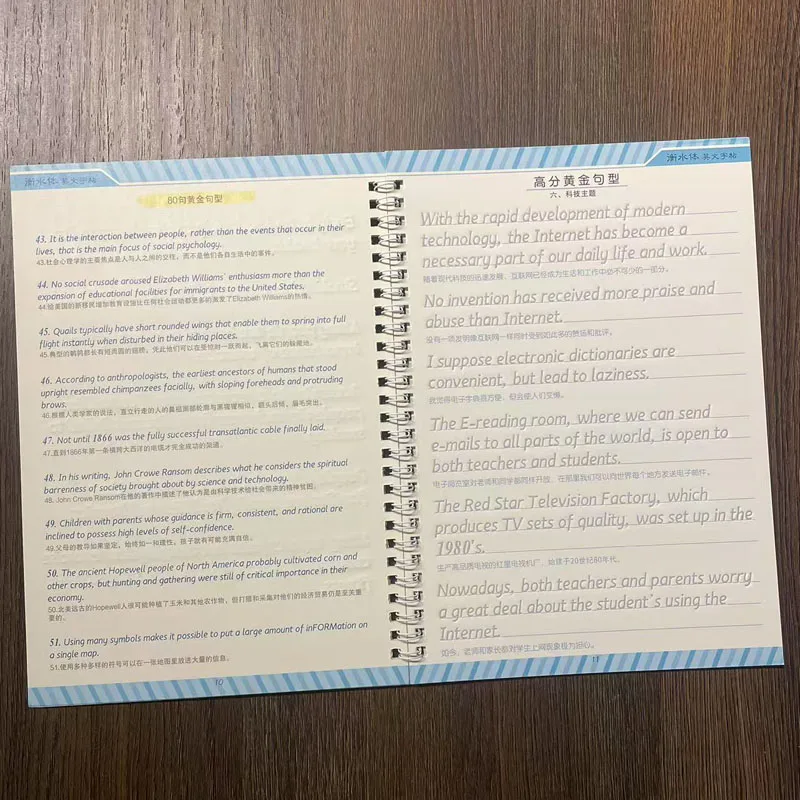 衡水体 英文字帖
80句黄金句型
43. It is the interaction between people, rather than the events that occur in their
lives, that is the main focus of social psychology.
43.社会心理学的主要焦点是人与人之间的交往，而不是他们各自生活中的事件。
44. No social crusade aroused Elizabeth Williams' enthusiasm more than the
expansion of educational facilities for immigrants to the United States.
44.给美国的新移民增加教育设施比任何社会运动都更多的激发了Elizabeth Williams的热情。
45. Quails typically have short rounded wings that enable them to spring into full
flight instantly when disturbed in their hiding places.
45.典型的鹌鹑都长有短而圆的翅膀，凭此他们可以在受惊时一跃而起，飞离它们的躲藏地。
46. According to anthropologists, the earliest ancestors of humans that stood
upright resembled chimpanzees facially, with sloping foreheads and protruding
brows.
46.根据人类学家的说法，直立行走的人的鼻祖面部轮廓与黑猩猩相似，额头后倾，眉毛突出。
47. Not until 1866 was the fully successful transatlantic cable finally laid.
47.直到1866年第一条横跨大西洋的电缆才完全成功的架通。
48. In his writing, John Crowe Ransom describes what he considers the spiritual
barrenness of society brought about by science and technology.
48. John Crowe Ransom在他的著作中描述了他认为是由科学技术给社会带来的精神贫困。
49. Children with parents whose guidance is firm, consistent, and rational are
inclined to possess high levels of self-confidence.
49.父母的教导如果坚定，始终如一和理性，孩子就有可能充满自信。
50. The ancient Hopewell people of North America probably cultivated corn and
other crops, but hunting and gathering were still of critical importance in their
economy.
50.北美远古的Hopewell人很可能种植了玉米和其他农作物，但打猎和采集对他们的经济贸易仍是至关重
要的。
51. Using many symbols makes it possible to put a large amount of inFORMation on
a single map.
51.使用多种多样的符号可以在一张地图里放进大量的信息。
10
衡水体 英文字帖
高分黄金句型
六、科技主题
With the rapid development of modern
technology, the Internet has become a
necessary part of our daily life and work.
随着现代科技的迅速发展，互联网已经成为生活和工作中必不可少的一部分。
No invention has received more praise and
abuse than Internet.
没有一项发明像互联网一样同时受到如此多的赞扬和批评。
I suppose electronic dictionaries are
convenient, but lead to laziness.
我觉得电子字典很方便，但会使人们变懒。
The E-reading room, where we can send
e-mails to all parts of the world, is open to
both teachers and students.
电子阅览室对老师和同学都同样开放，在那里我们可以向世界每个地方发送电子邮件。
The Red Star Television Factory, which
produces TV sets of quality, was set up in the
1980's.
生产高品质电视的红星电视机厂，始建于20世纪80年代。
Nowadays, both teachers and parents worry
a great deal about the student's using the
Internet.
如今，老师和家长都对学生上网现象极为担心。
11